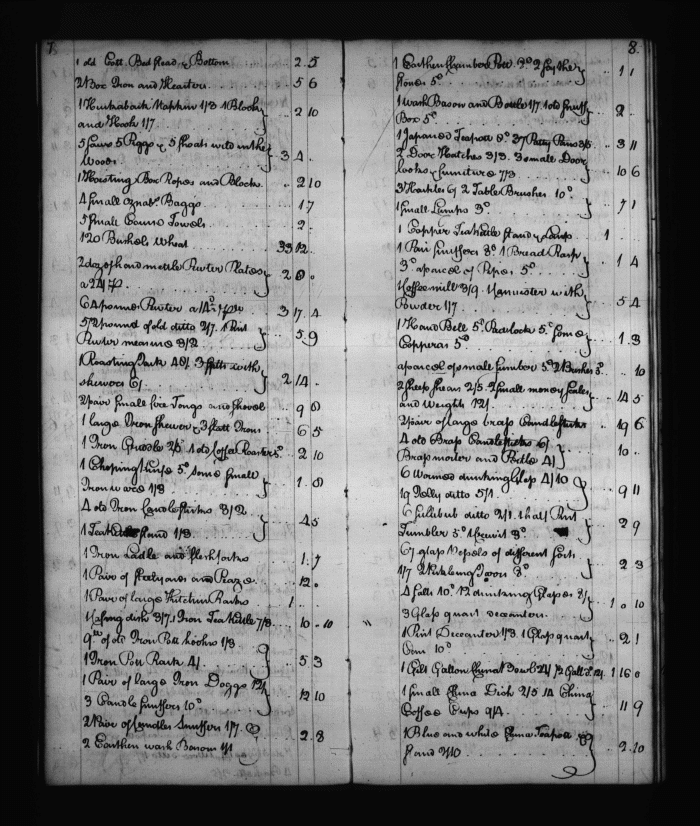 7.
1 old Cott Bed stead & Bottom 2.5
2 Box Iron and Heaters 5 6
1 Huckaback Napkin 1/3 1 Block
and Hook 1/7 2 10
5 Sows 5 Piggs & 5 Shoats wild in the
Woods 3 4
1 Hoisting Box Ropes and Blocks 2 10
4 Small Baggs 17
5 Small Towels 2
120 Bushels Wheat 33 12
2 doz and mettle Pewter Plates
a 24/ 2 8
pound Pewter a 3 17.4
pound of old ditto 2/7. 1 Pint
Pewter measure 3/2 5.9
1 Roasting Jack 40/. 3 spitts with
skewers 6/ 2 14
2 pair Small fire Tongs and shovel 9 6
1 large Iron Skewer & 3 flatt Irons 6 5
1 Iron Griddle 2/6 1 old Coffee Roaster 5d 2 10
1 Choping knife 5d some small
Iron ware 1/3 1.8
4 old Iron Candlesticks 3/2
1 Tea stand 1/3 4 5
1 Iron Ladle and flesh forks 1.7
1 Pair of Stealyards and 12.
1 Pair of large Kitchin Racks 1
1 Chafing dish 3/7. 1 Iron Tea Kettle 7/3 10 10
9 of old Iron Pott hooks 1/3
1 Iron Pott Rack 4/ 5 3
1 Pair of large Iron Doggs 12/
3 Candle Snuffers 10d 12 10
2 Pair of Candles Snuffers 1/7
2 Earthen wash Basons 2.8
8.
1 Earthen Chamber Pott 3d 2 Scythe
stones 5d 1 1
1 wash Bason and Bottle 1/7. 1 old Snuff
Box 5d 2
1 Japaned Teapott 8d 37 Patty Pans 3/3 3 11
2 Door Hatches 3/3. 3 small Door
locks & furniture 7/3 10 6
3 Hackles 6/ 2 Table Brushes 10d
1 Small Lamp 3d 7 1
1 Copper Tea Kettle stand & Lamp 1
1 Pair Snuffers 8d 1 Bread Rasp
3d a parcel of Pipes 5d 1 4
1 Coffee mill 3/9. 1 Cannister with
Powder 1/7 5 4
1 Hand Bell 5d Padlock 5d some
Copperas 5d 1.3
a parcel of small Lumber 5d 2 Bushes 5d 10
2 Sheep Shears 2/5. 2 small money Scales
and Weights 12/ 14 5
2 pair of large brass Candlesticks 19 6
4 old Brass Candlesticks 6/
Brass morter and Pestle 4/ 10
6 Wormed drinking Glass 4/10
19 Jelly ditto 5/1 9 11
6 Sullibub ditto 2/1. 1 half Pint
Tumbler 5d 1 Crewit 3d 2 9
67 glass Vessels of different sorts
1/7 2 Pickling Jarrs 8d 2 3
4 Salts 10d 12 drinking Glasses 8/
3 Glass quart decanters 10 10
1 Pint Decanter 1/3. 1 Glass quart
Can 10d 2 1
1 Gilt Gallon China Bowl 24/ 1 16 0
1 Small China Dish 2/5 14 China
Coffee Cups 9/4 11 9
1 Blue and white China Teapott
and 2/10 2.10